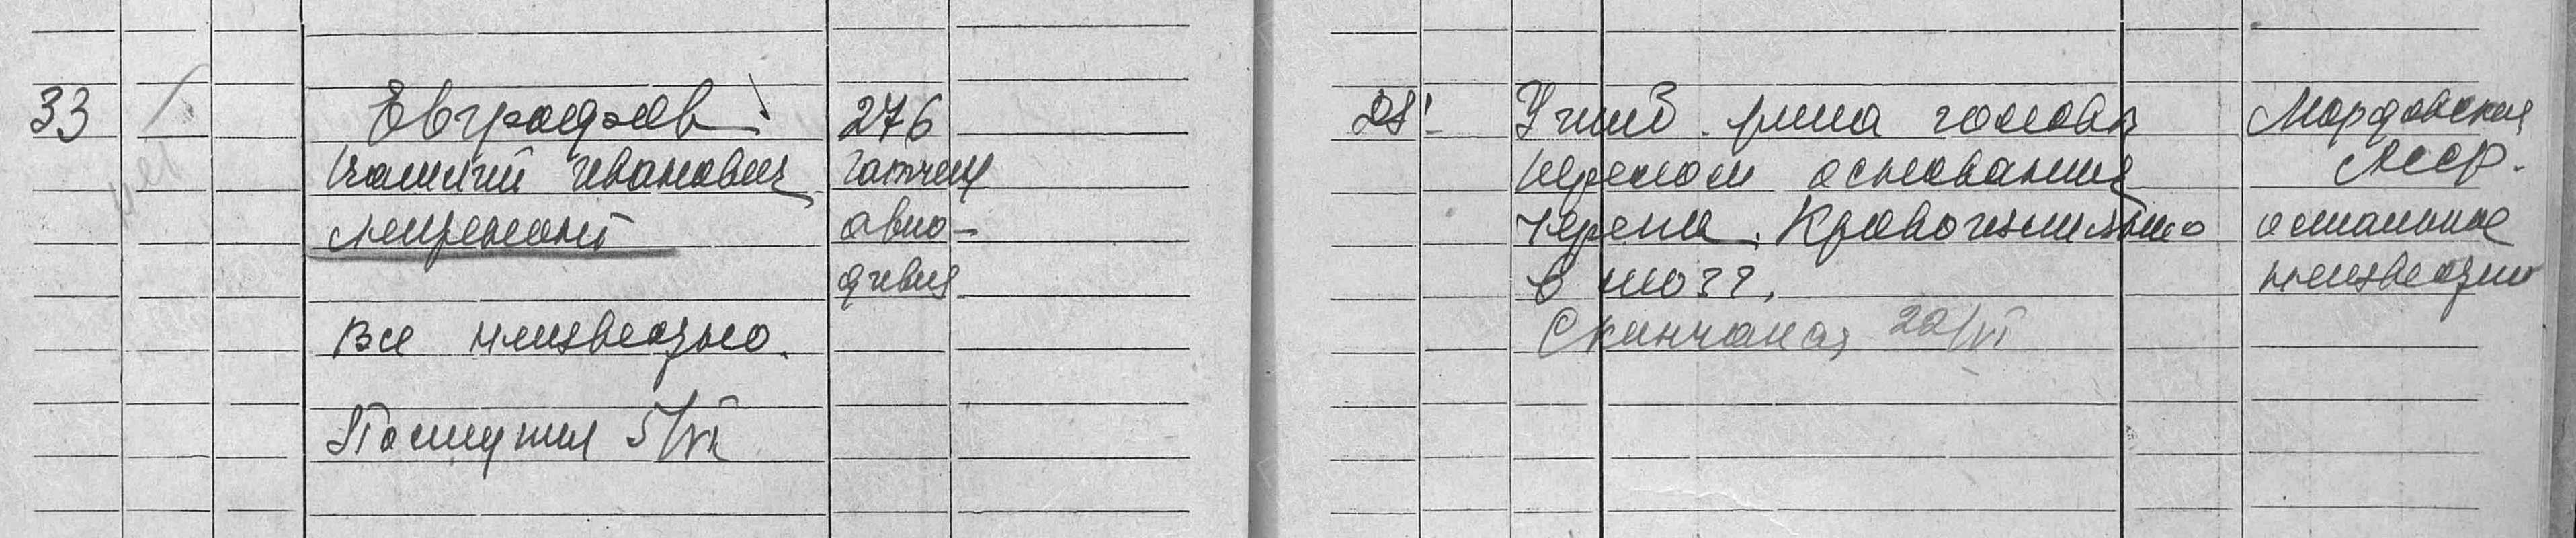 33
Евграфов
Иванович
Лейтенант
Все неизвестно.
Поступил 5/VI
276
гатчен
авио-
дивиз
28
Ушиб. рана головы
перелом основания
черепа. Кровоизлияние
в мозг.
Скончался 22/VI
Мордовская
АССР.
остальное
неизвестно